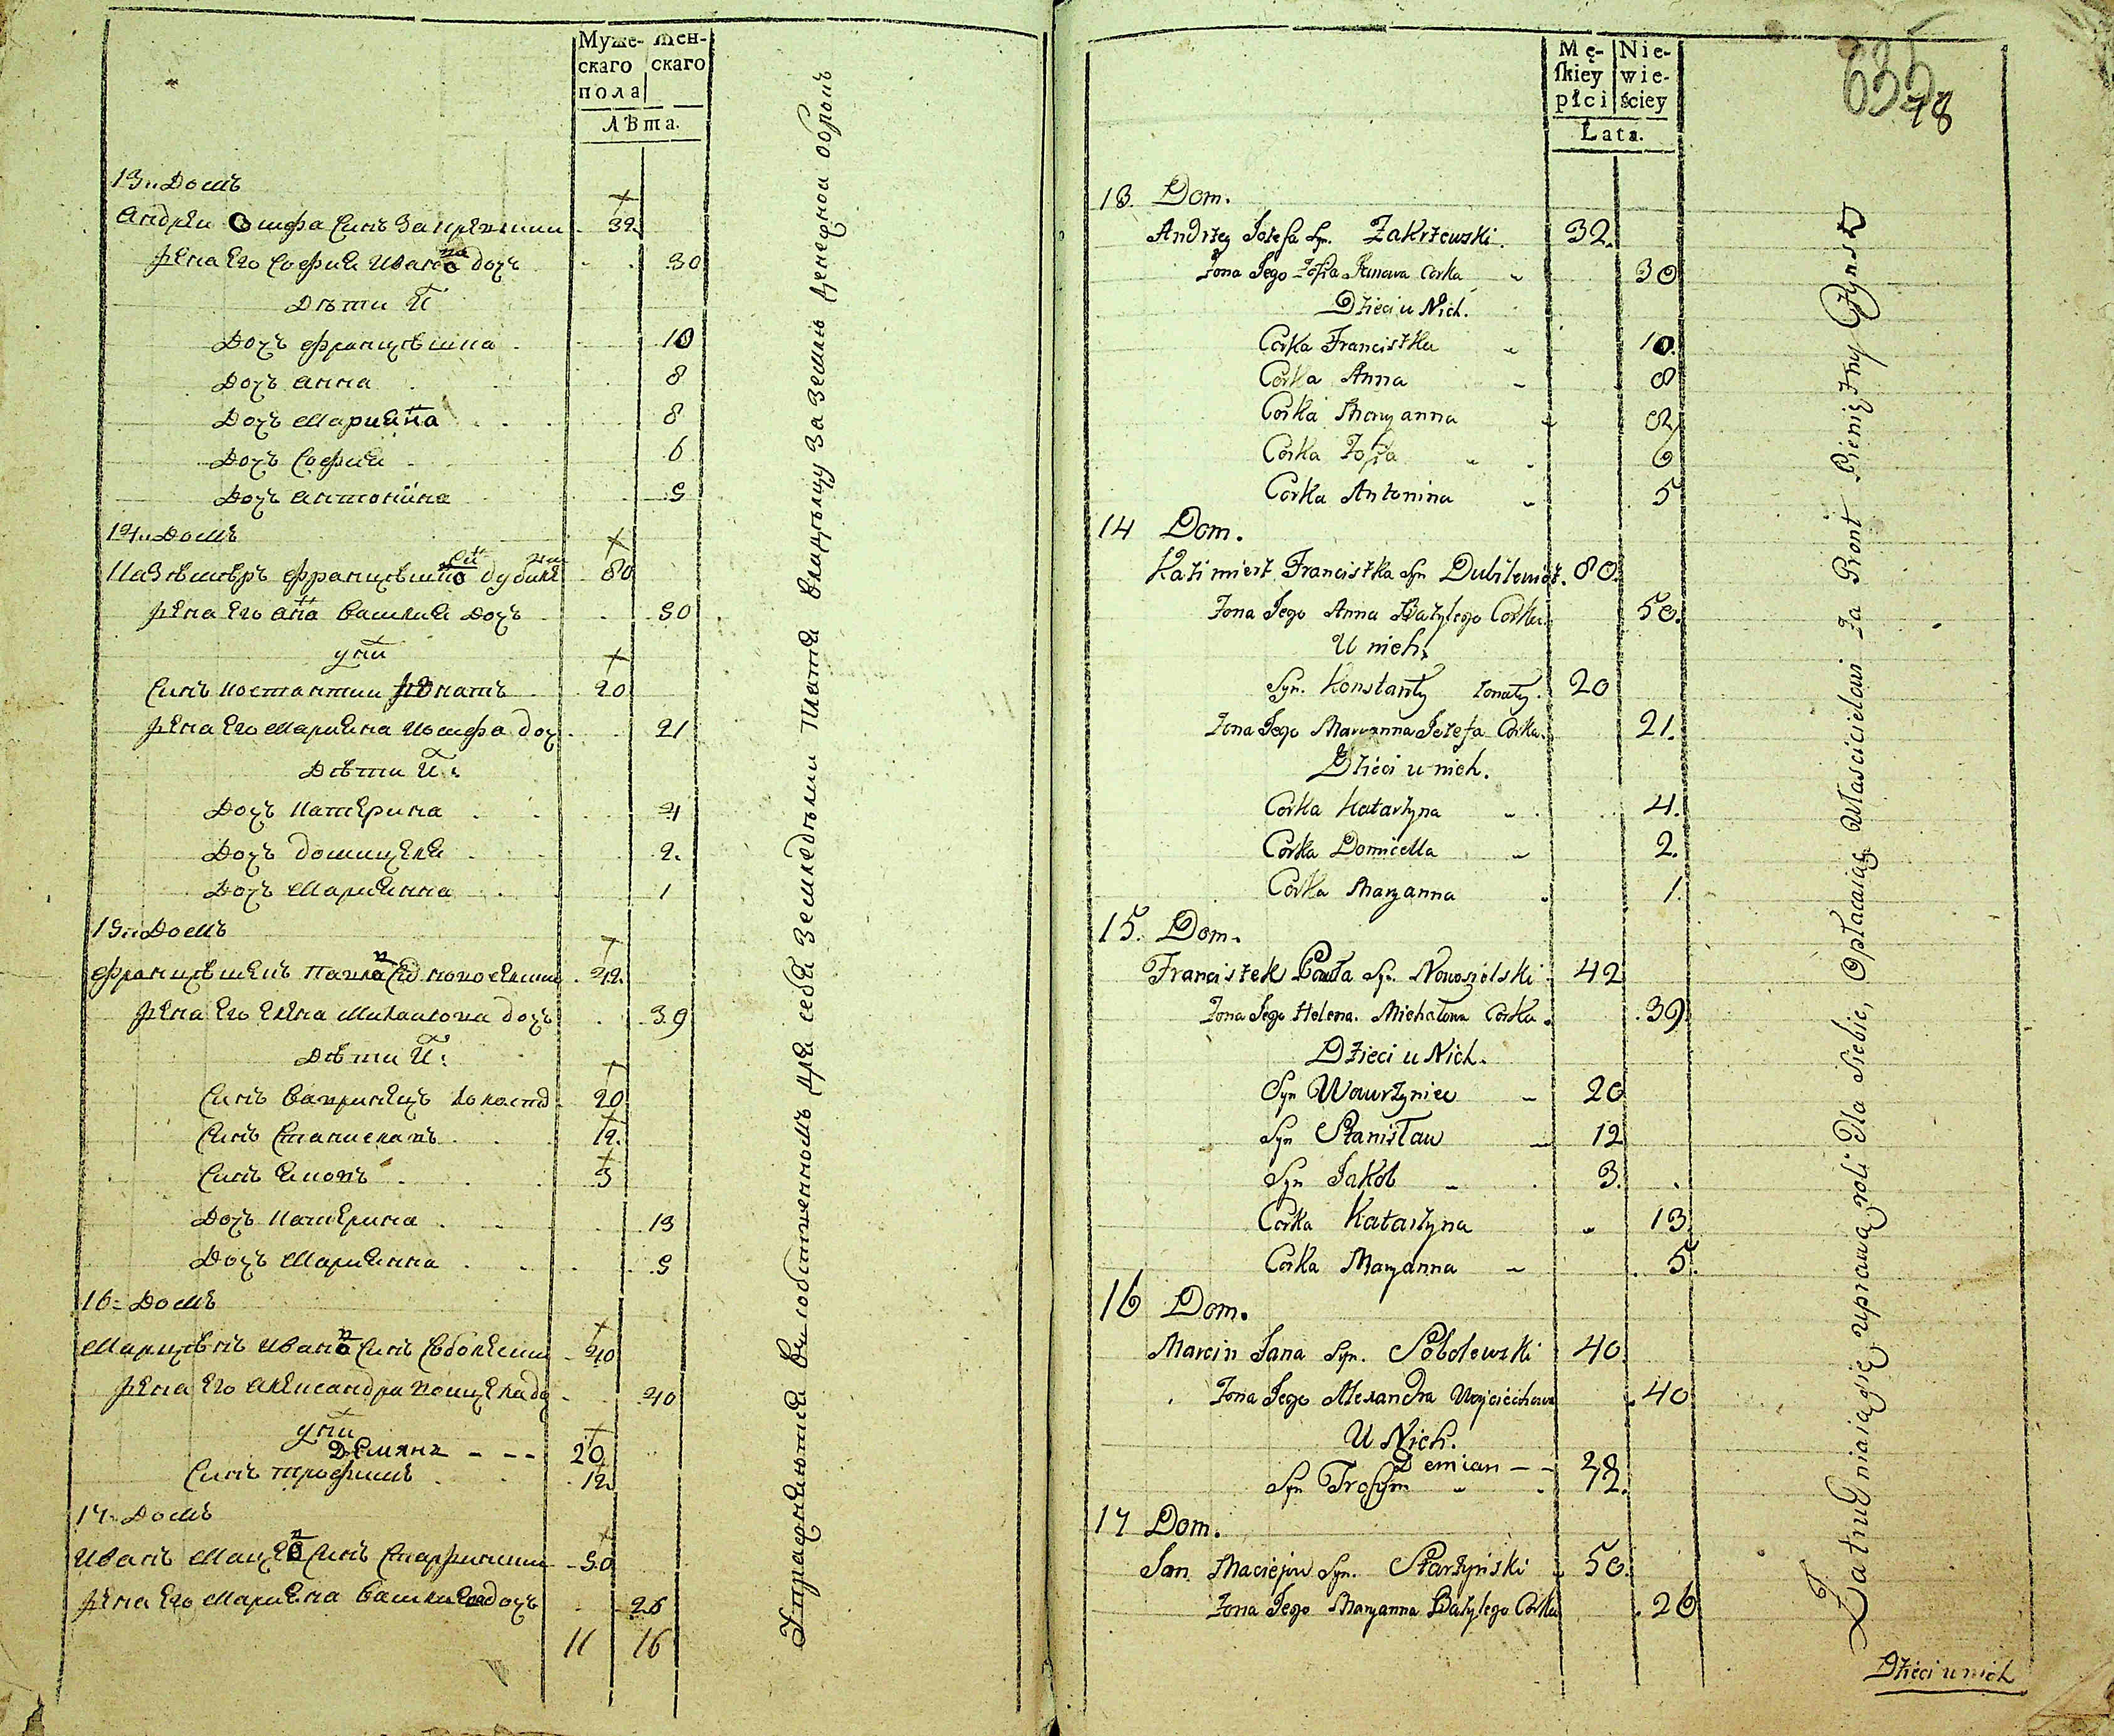 Муже- жен-
скаго скаго
пола
Лѣта.
13. Домъ
Андрей Юзифа Синъ Закржевски 32.
Жена Его Софія Ивано дочъ 30
Дѣти их
Дочъ Францѣшка 10
Дочъ Анна 8
Дочъ Марияна 8
Дочъ София 6
Дочъ Антонина 5
14. Домъ
Казѣмѣръ Францѣшко 80
Жена Его Анна Василия Дочъ 50
у них
Синъ Костантии Жѣнатъ 20
Жена Его Марияна Иозифа доч 21
Дѣти их:
Дочъ Катерина 4
Дочъ Домицеля 2.
Дочъ Марианна 1
15. Домъ
Францѣшекъ Павло 42.
Жена Его Елена Михайлова дочъ 39
Дѣти их:
Синъ Вавринецъ 20
Синъ Станиславъ 12.
Синъ Яковъ 3
Дочъ Катерина 13
Дочъ Марианна 5
16. Домъ
Марцѣнъ Ивано Синъ Соболевски 40
Жена Его Александра 40
у них
Демянъ - - - 20
Синъ Трофимъ 12.
17. Домъ
Иванъ Мацѣо Синъ Старжински 50
Жена Его Марияна Василия дочъ 26
11 16
Упражняются въ собственномъ для себя земледѣлии платя владѣльцу за землю денежной оброкъ
635
78
Mę- Nie-
skiey wie-
płci ściey
Lata.
13. Dom.
Andrzey Jozefa Syn. Zakrzewski. 32.
Zona Jego Zofia Janowa Corka 30
Dzieci u Nich.
Corka Franciszka 10.
Corka Anna 8
Corka Maryanna 8
Corka Zofia 6
Corka Antonina 5
14 Dom.
Kazimierz Franciszka Syn 80.
Zona Jego Anna Bazylego Corka. 50.
U nich.
Syn. Konstanty zonaty. 20
Zona Jego Maryanna Jozefa Corka. 21.
Dzieci u nich.
Corka Katarzyna 4.
Corka Domicella 2.
Corka Maryanna 1.
15. Dom.
Franciszek Pawła Syn. Nowosielski 42
Zona Jego Helena. Michałowa Corka. 39.
Dzieci u Nich.
Syn Wawrzyniec 20
Syn Stanisław 12
Syn Jakob 3.
Corka Katarzyna 13
Corka Maryanna 5.
16 Dom.
Marcin Jana Syn. Sobolewski 40.
Zona Jego Alexandra Woyciechowa 40
U Nich.
Demian - -
Syn Trofim 12.
17 Dom.
Jan Macieja Syn. Starzynski 50.
Zona Jego Maryanna Bazylego Corka 26
Zatrudniaią się uprawą roli Dla Siebie, Opłacaiąc Właścicielowi Za Gront Pieniężny Czynsz
Dzieci u nich